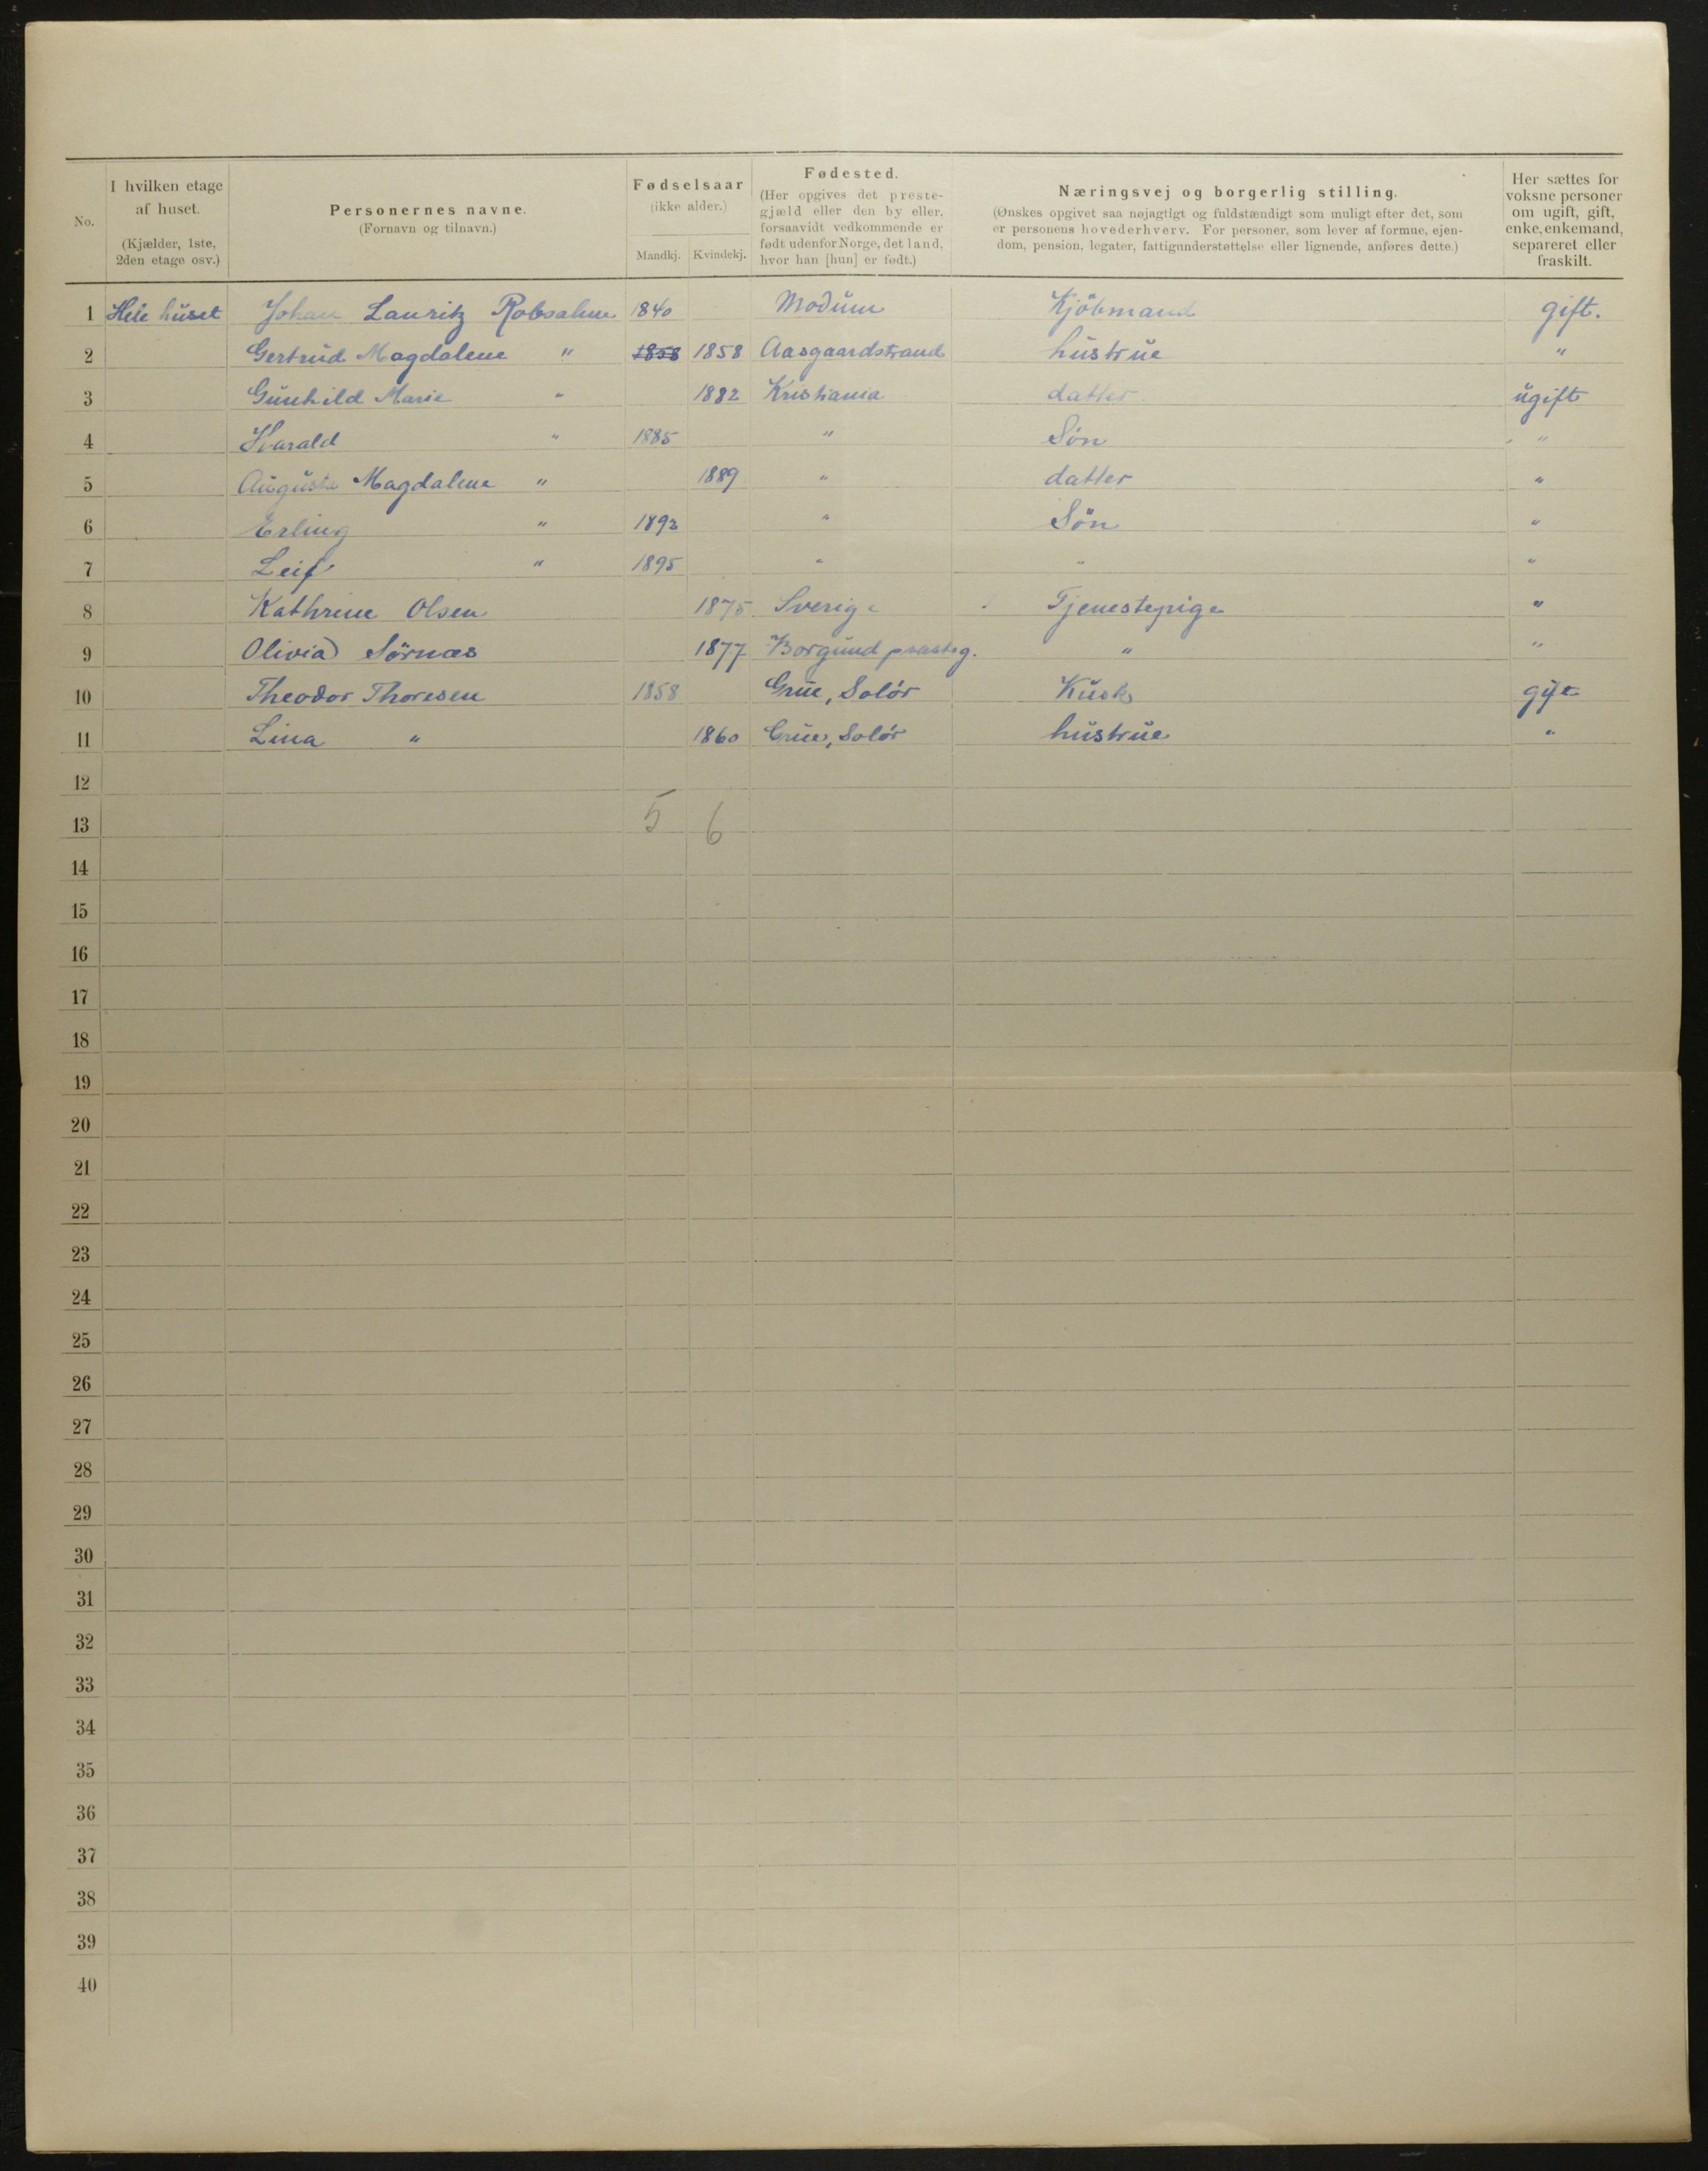 No. | I hvilken etage af huset. (Kjælder, 1ste, 2den etage osv.) | Personernes navne. (Fornavn og tilnavn.) | Fødselsaar (ikke alder.) Mandkj. | Kvindekj. | Fødested. (Her opgives det prestegjæld eller den by eller, forsaavidt vedkommende er født udenfor Norge, det land, hvor han [hun] er født.) | Næringsvej og borgerlig stilling. (Ønskes opgivet saa nøjagtigt og fuldstændigt som muligt efter det, som er personens hovederhverv. For personer, som lever af formue, ejendom, pension, legater, fattigunderstøttelse eller lignende, anføres dette.) | Her sættes for voksne personer om ugift, gift, enke, enkemand, separeret eller fraskilt.
1 Hele huset Johan Lauritz Robsahm 1840 Modum Kjöbmand gift.
2 Gertrud Magdalene " 1858 1858 Aasgaardstrand hustrue "
3 Gunhild Marie " 1882 Kristiania datter ugift
4 Harald " 1885 " Sön "
5 Augusta Magdalene " 1889 " datter "
6 Erling " 1892 " Sön "
7 Leif " 1895 " " "
8 Kathrine Olsen 1875 Sverige Tjenestepige "
9 Olivia Sörnæs 1877 Borgund præsteg. " "
10 Theodor Thoresen 1858 Grue, Solör Kusk gift
11 Lina " 1860 Grue, Solör hustrue "
12
13 5 6
14
15
16
17
18
19
20
21
22
23
24
25
26
27
28
29
30
31
32
33
34
35
36
37
38
39
40